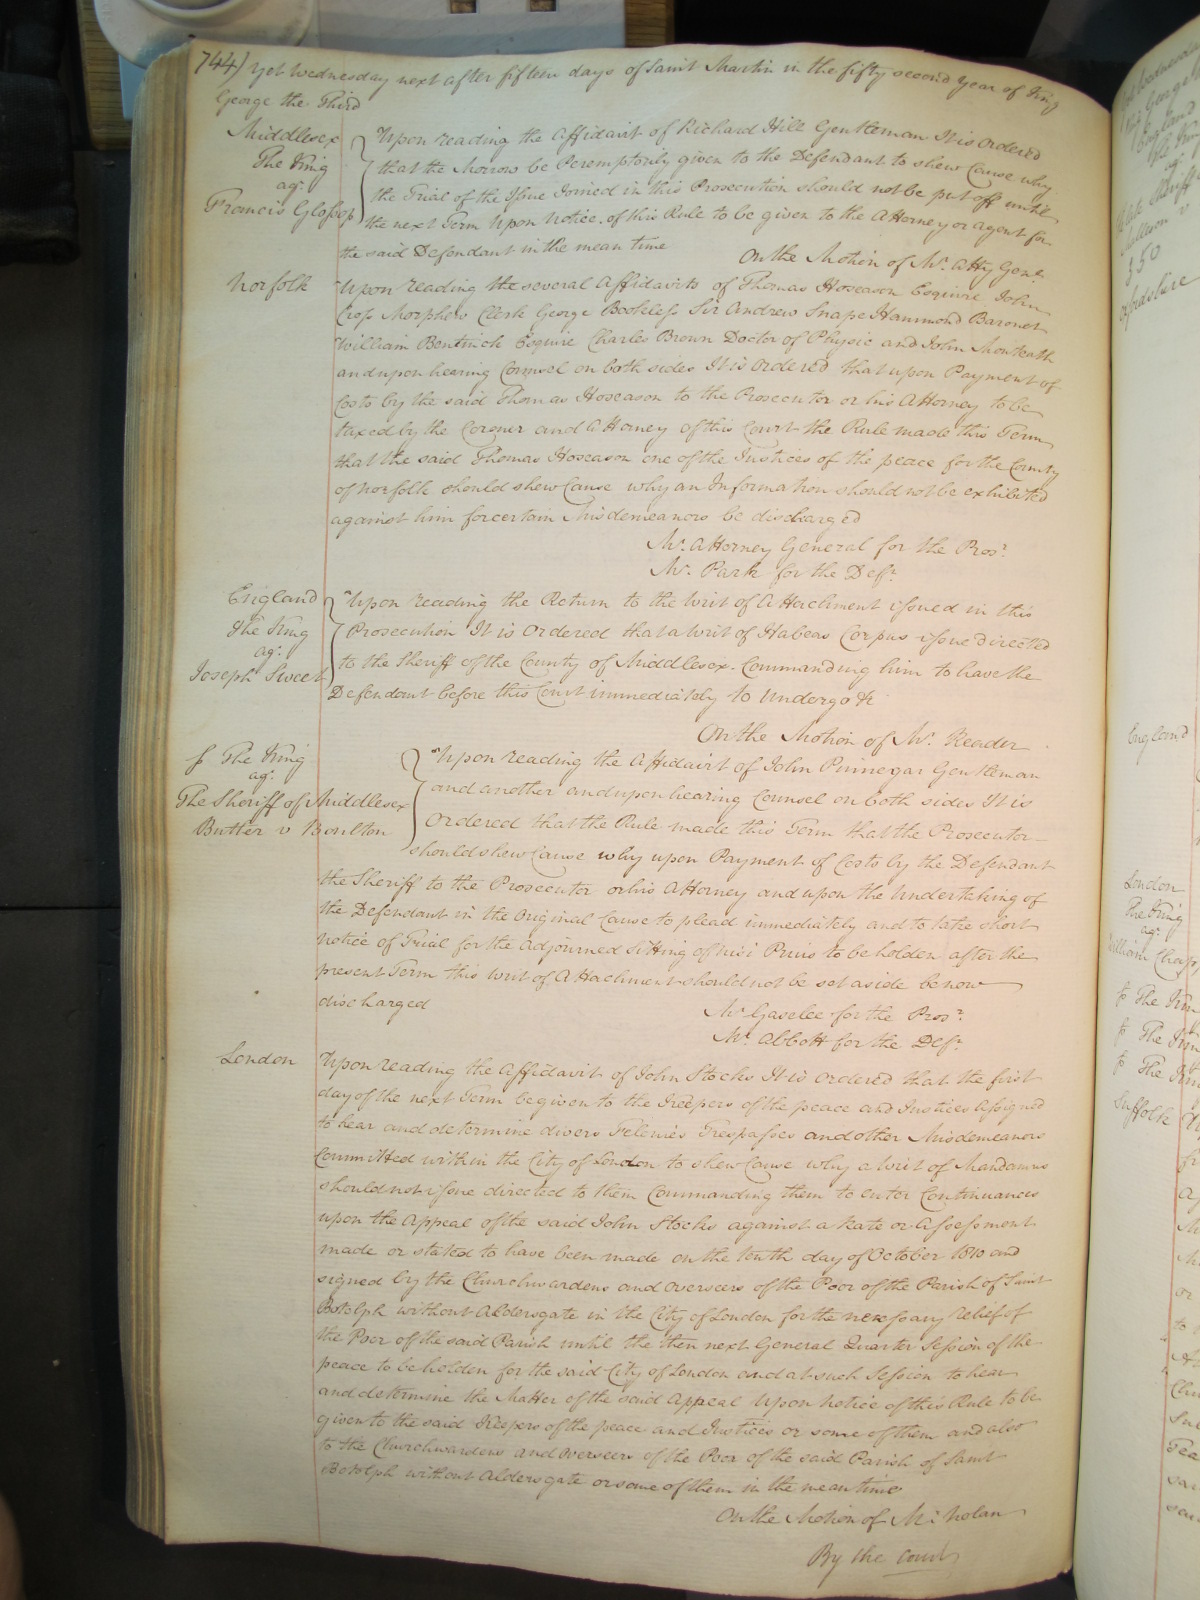 744) Yet Wednesday next after fifteen days of Saint Martin in the fifty second Year of King
George the Third
Middlesex
The King
agt.
Francis Glossop
Upon reading the Affidavit of Richard Hill Gentleman It is Ordered
that the Morrow be Peremptorily given to the Defendant to shew Cause why
the Trial of the Issue Joined in this Prosecution should not be put off until
the next Term Upon Notice of this Rule to be given to the Attorney or agent for
the said Defendant in the mean time
On the Motion of Mr. Atty Genl.
Norfolk
Upon reading the several Affidavits of Thomas Hoseason Esquire John
Cross Morphew Clerk George Bookless Sir Andrew Snape Hammond Baronet
William Bentinck Esquire Charles Brown Doctor of Physic and John Monteath
and upon hearing Counsel on both sides It is Ordered that upon Payment of
Costs by the said Thomas Hoseason to the Prosecutor or his Attorney to be
taxed by the Coroner and Attorney of this Court the Rule made this Term
that the said Thomas Hoseason one of the Justices of the peace for the County
of Norfolk should shew Cause why an Information should not be exhibited
against him for certain Misdemeanors be discharged
Mr. Attorney General for the Prosr.
Mr. Park for the Deft.
England
The King
agt.
Joseph Sweet
Upon reading the Return to the Writ of Attachment issued in this
Prosecution It is Ordered that a Writ of Habeas Corpus issue directed
to the Sheriff of the County of Middlesex Commanding him to have the
Defendant before this Court immediately to Undergo &c
On the Motion of Mr. Reader
The King
agt.
The Sheriff of Middlesex
Butter v Boulton
Upon reading the Affidavit of John Pinnegar Gentleman
and another and upon hearing Counsel on both sides It is
Ordered that the Rule made this Term that the Prosecutor
should shew Cause why upon Payment of Costs by the Defendant
the Sheriff to the Prosecutor or his Attorney and upon the Undertaking of
the Defendant in the Original Cause to plead immediately and to take short
Notice of Trial for the adjourned Sitting of Nisi Prius to be holden after the
present Term this Writ of Attachment should not be set aside be now
discharged
Mr. Gaselee for the Prosr.
Mr. Abbott for the Deft.
London
Upon reading the Affidavit of John Stocks It is Ordered that the first
day of the next Term be given to the Keepers of the peace and Justices Assigned
to hear and determine divers Felonies Trespasses and other Misdemeanors
Committed within the City of London to shew Cause why a Writ of Mandamus
should not issue directed to them Commanding them to enter Continuances
upon the Appeal of the said John Stocks against a Rate or Assessment
made or stated to have been made on the tenth day of October 1810 and
signed by the Churchwardens and Overseers of the Poor of the Parish of Saint
Botolph without Aldersgate in the City of London for the necessary relief of
the Poor of the said Parish until the then next General Quarter Session of the
peace to be holden for the said City of London and at such Session to hear
and determine the Matter of the said Appeal Upon Notice of this Rule to be
given to the said Keepers of the peace and Justices or some of them and also
to the Churchwardens and Overseers of the Poor of the said Parish of Saint
Botolph without Aldersgate or some of them in the mean time
On the Motion of Mr Nolan
By the Court
England
London
The King
agt.
The
The
The
Suffolk